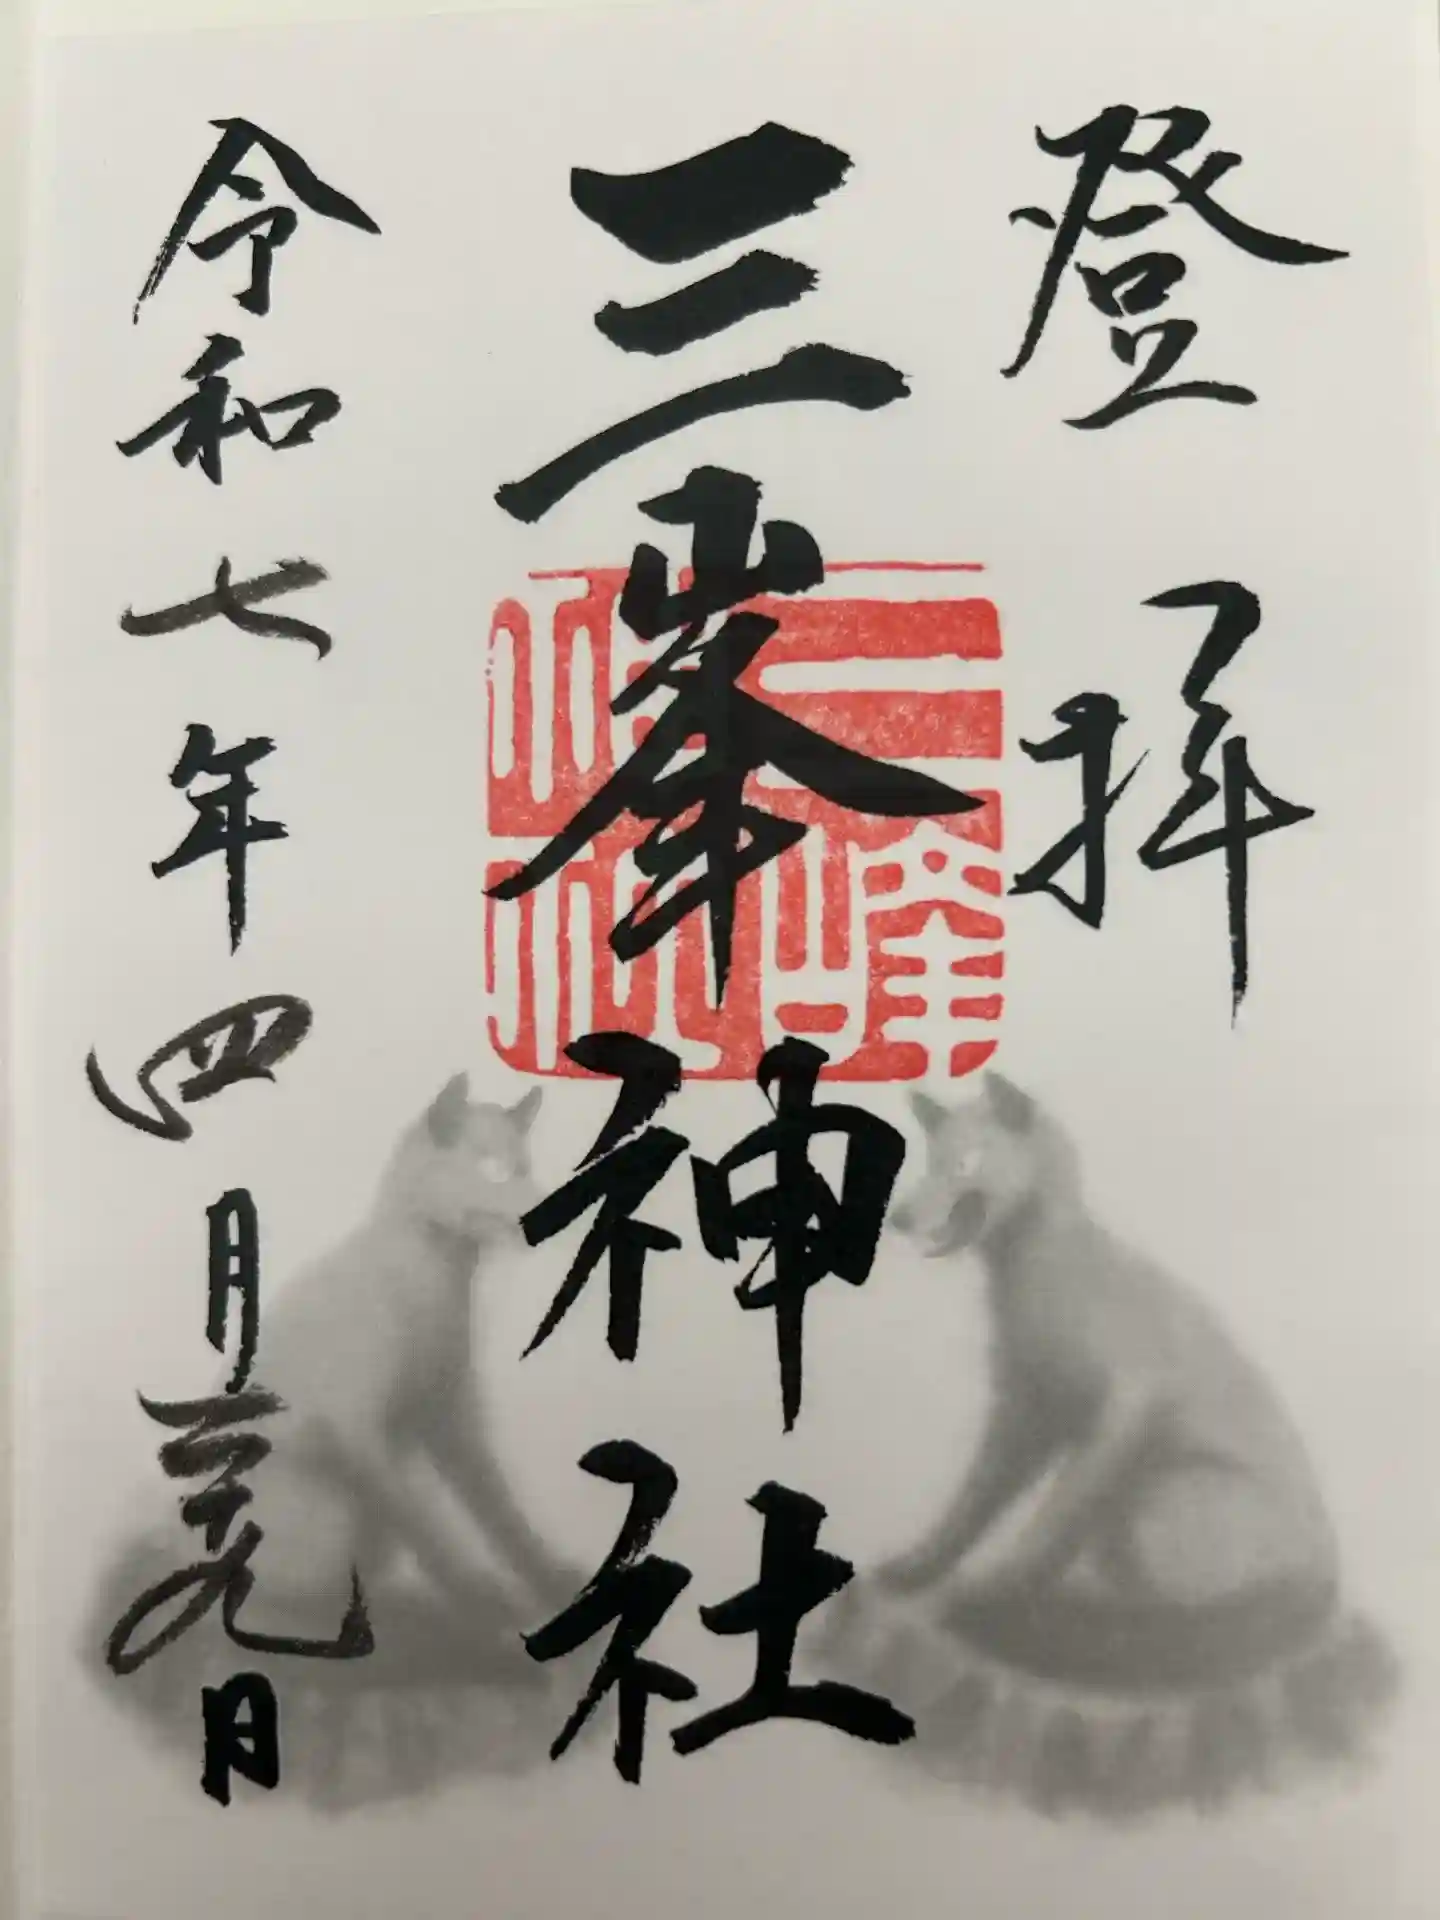 登拝
三峯神社
三峰神社
令和七年四月二十九日